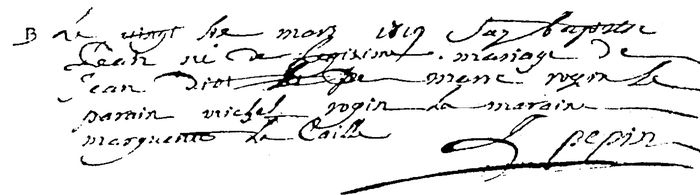 B Le vingt six mars 1719 Jay baptise
Jean né de legitime mariage de
Jean diot et de marie rogin le
parain michel rogin la maraine
marguerite la Caille
J pepin